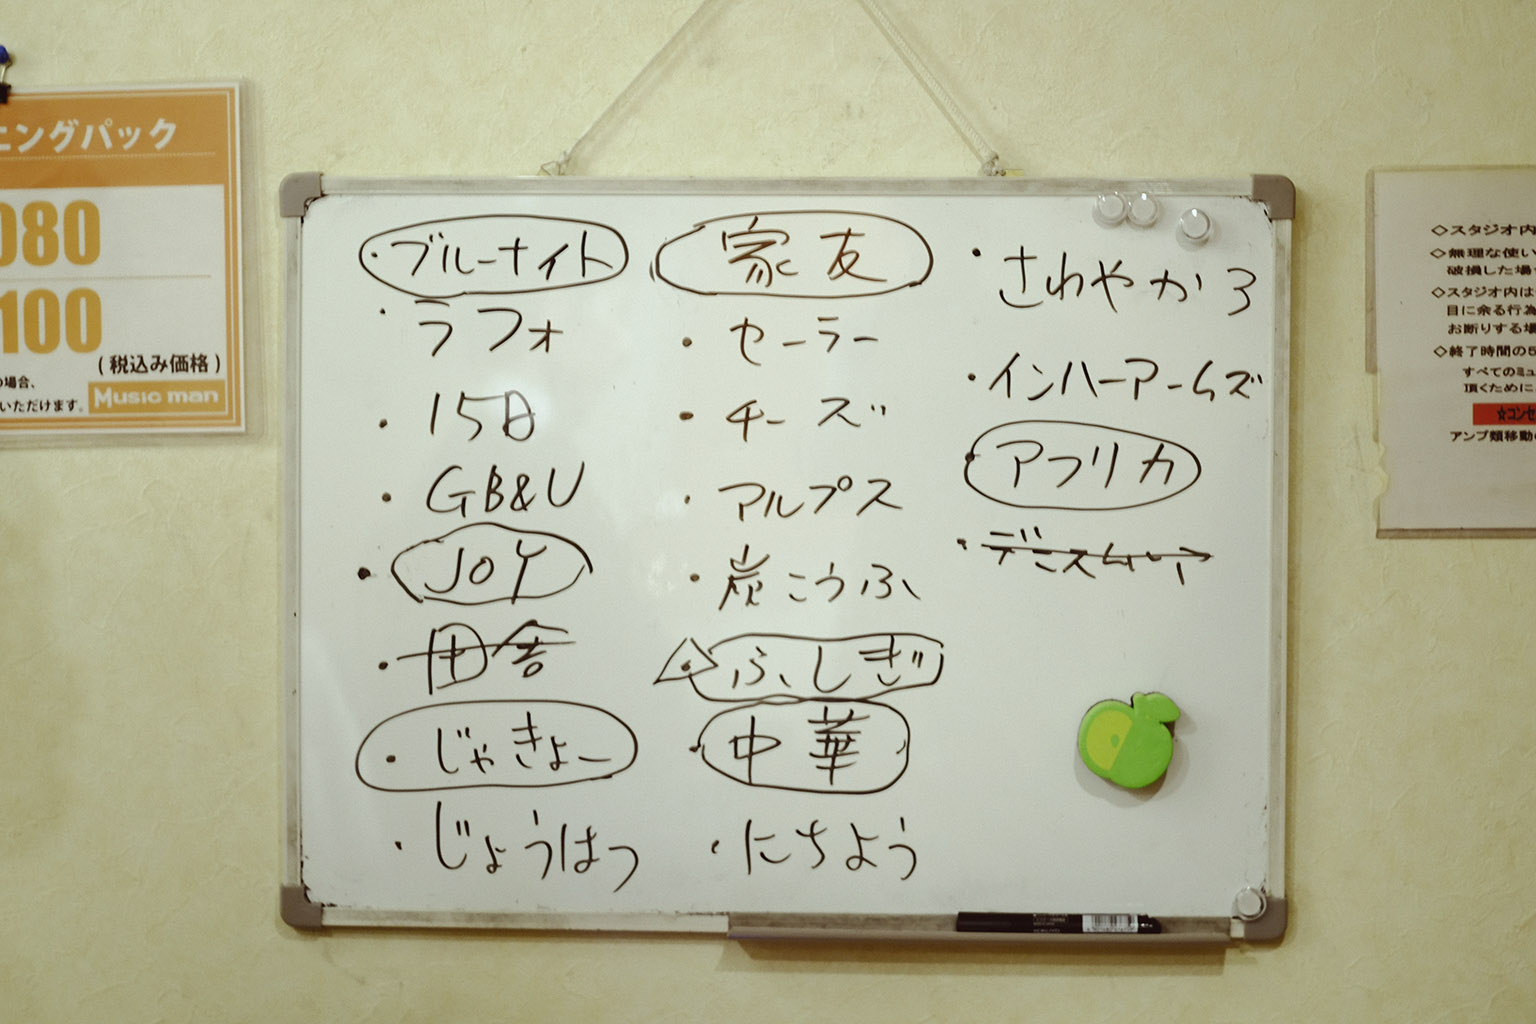 ニングパック
080
100
(税込み価格)
の場合、
いただけます。
Music man
・ブルーナイト
・ラフォ
・15日
・GB&U
・JOY
・田舎
・じゃきょー
・じょうはつ
家友
・セーラー
・チーズ
・アルプス
・炭こうふ
・ふしぎ
・中華
・にちよう
・さわやか3
・インハーアームズ
・アフリカ
◇スタジオ内
◇無理な使い
破損した場
◇スタジオ内は
目に余る行為
お断りする場
◇終了時間の5
すべてのミュ
頂くために
☆コンセ
アンプ類移動